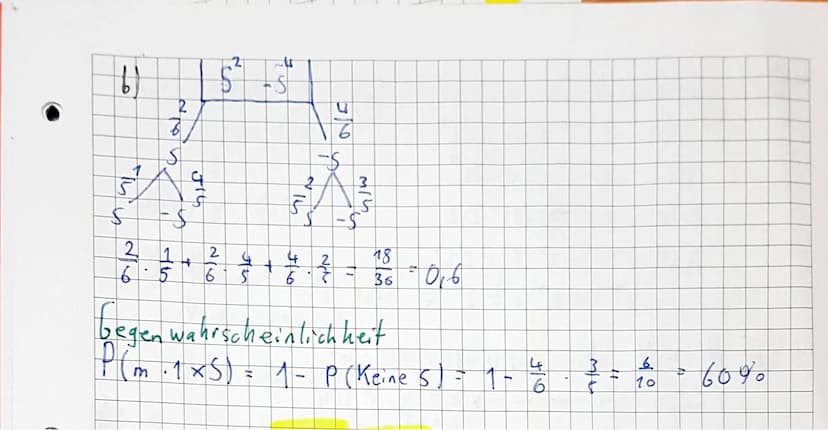 b) S² -S⁴
2/6 4/6
S -S
1/5 4/5 2/5 3/5
S -S S -S
2/6 · 1/5 + 2/6 · 4/5 + 4/6 · 2/5 = 18/36 = 0,6
Gegenwahrscheinlichkeit
P(m.1xS) = 1- P(Keine S) = 1- 4/6 · 3/5 = 6/10 = 60%